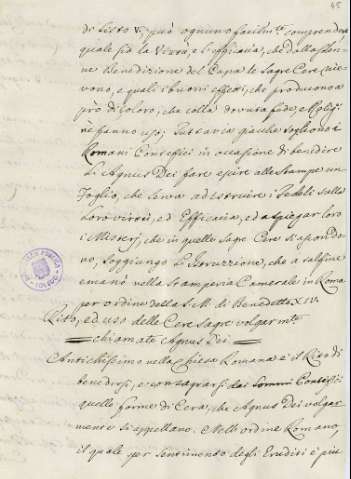 45
di Sisto V, può ognuno facilm.te comprendere
quale sia la Virtù, e l'efficacia, che dalla solen-
ne Benedizione del Papa le Sagre Cere rice-
vono, e quali i buoni effetti, che producono a
prò di coloro, che colla dovuta fede, e Religio-
ne fanno uso; Tuttavia giacche sogliono i
Romani Pontefici in occasione di benedire
li Agnus Dei fare escire alle stampe un
Foglio, che serva ad istruire i Fedeli sulla
loro virtù, ed Efficacia, ed a spiegar loro
i Misterj, che in quelle Sagre Cere si ascondo-
no, soggiungo la Istruzzione, che a tal fine
emanò nella Stamperia Camerale in Roma
per ordine della S. M. di Benedetto XIV.
Rito, ed uso delle Cere Sagre volgar m.te
chiamate Agnus Dei
Antichissimo nella Chiesa Romana è il Rito di
benedirsi, e consagrarsi dai Sommi Pontefici
quelle forme di Cera, che Agnus Dei volgar
mente si appellano. Nell'ordine Romano,
il quale per sentimento degli Eruditi è più